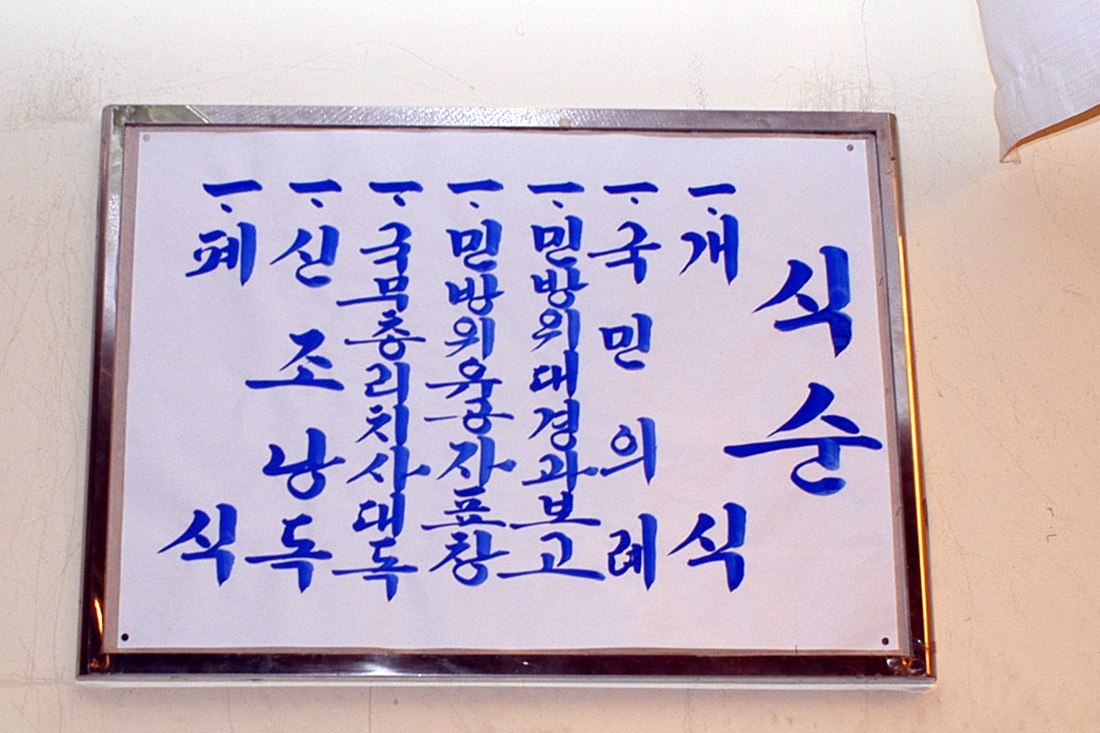 식순
一. 개식
一. 국민의례
一. 민방위대경과보고
一. 민방위유공자표창
一. 국무총리치사대독
一. 신조낭독
一. 폐식